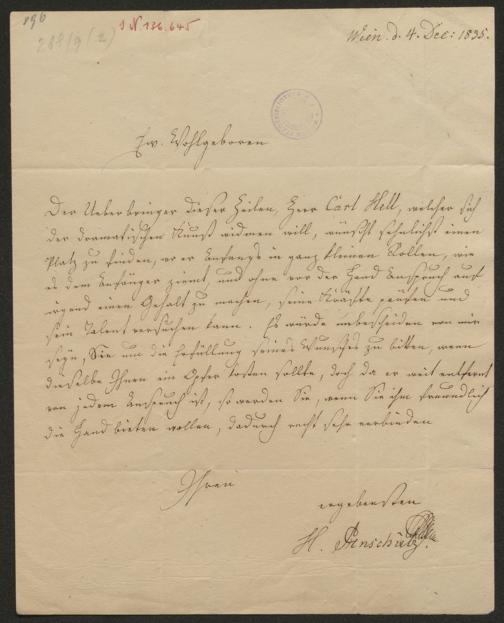 196
288/9(2)
I N. 126.645
Wien d. 4. Dec: 1835.
Ew. Wohlgeboren
Der Ueberbringer dieser Zeilen, Herr Carl Hell, welcher sich
der dramatischen Kunst widmen will, wünscht sehnlichst einen
Platz zu finden, wo er Anfangs in ganz kleinen Rollen, wie
es dem Anfänger ziemt, und ohne vor der Hand Anspruch auf
irgend einen Gehalt zu machen, seine Kräfte prüfen und
sein Talent versuchen kann. Es würde unbescheiden von mir
seyn, Sie um die Erfüllung seines Wunsches zu bitten, wenn
dieselbe Ihnen ein Opfer kosten sollte, doch da er weit entfernt
von jedem Anspruch ist, so werden Sie, wenn Sie ihm freundlich
die Hand bieten wollen, dadurch recht sehr verbinden
Ihren
ergebensten
H. Anschütz.